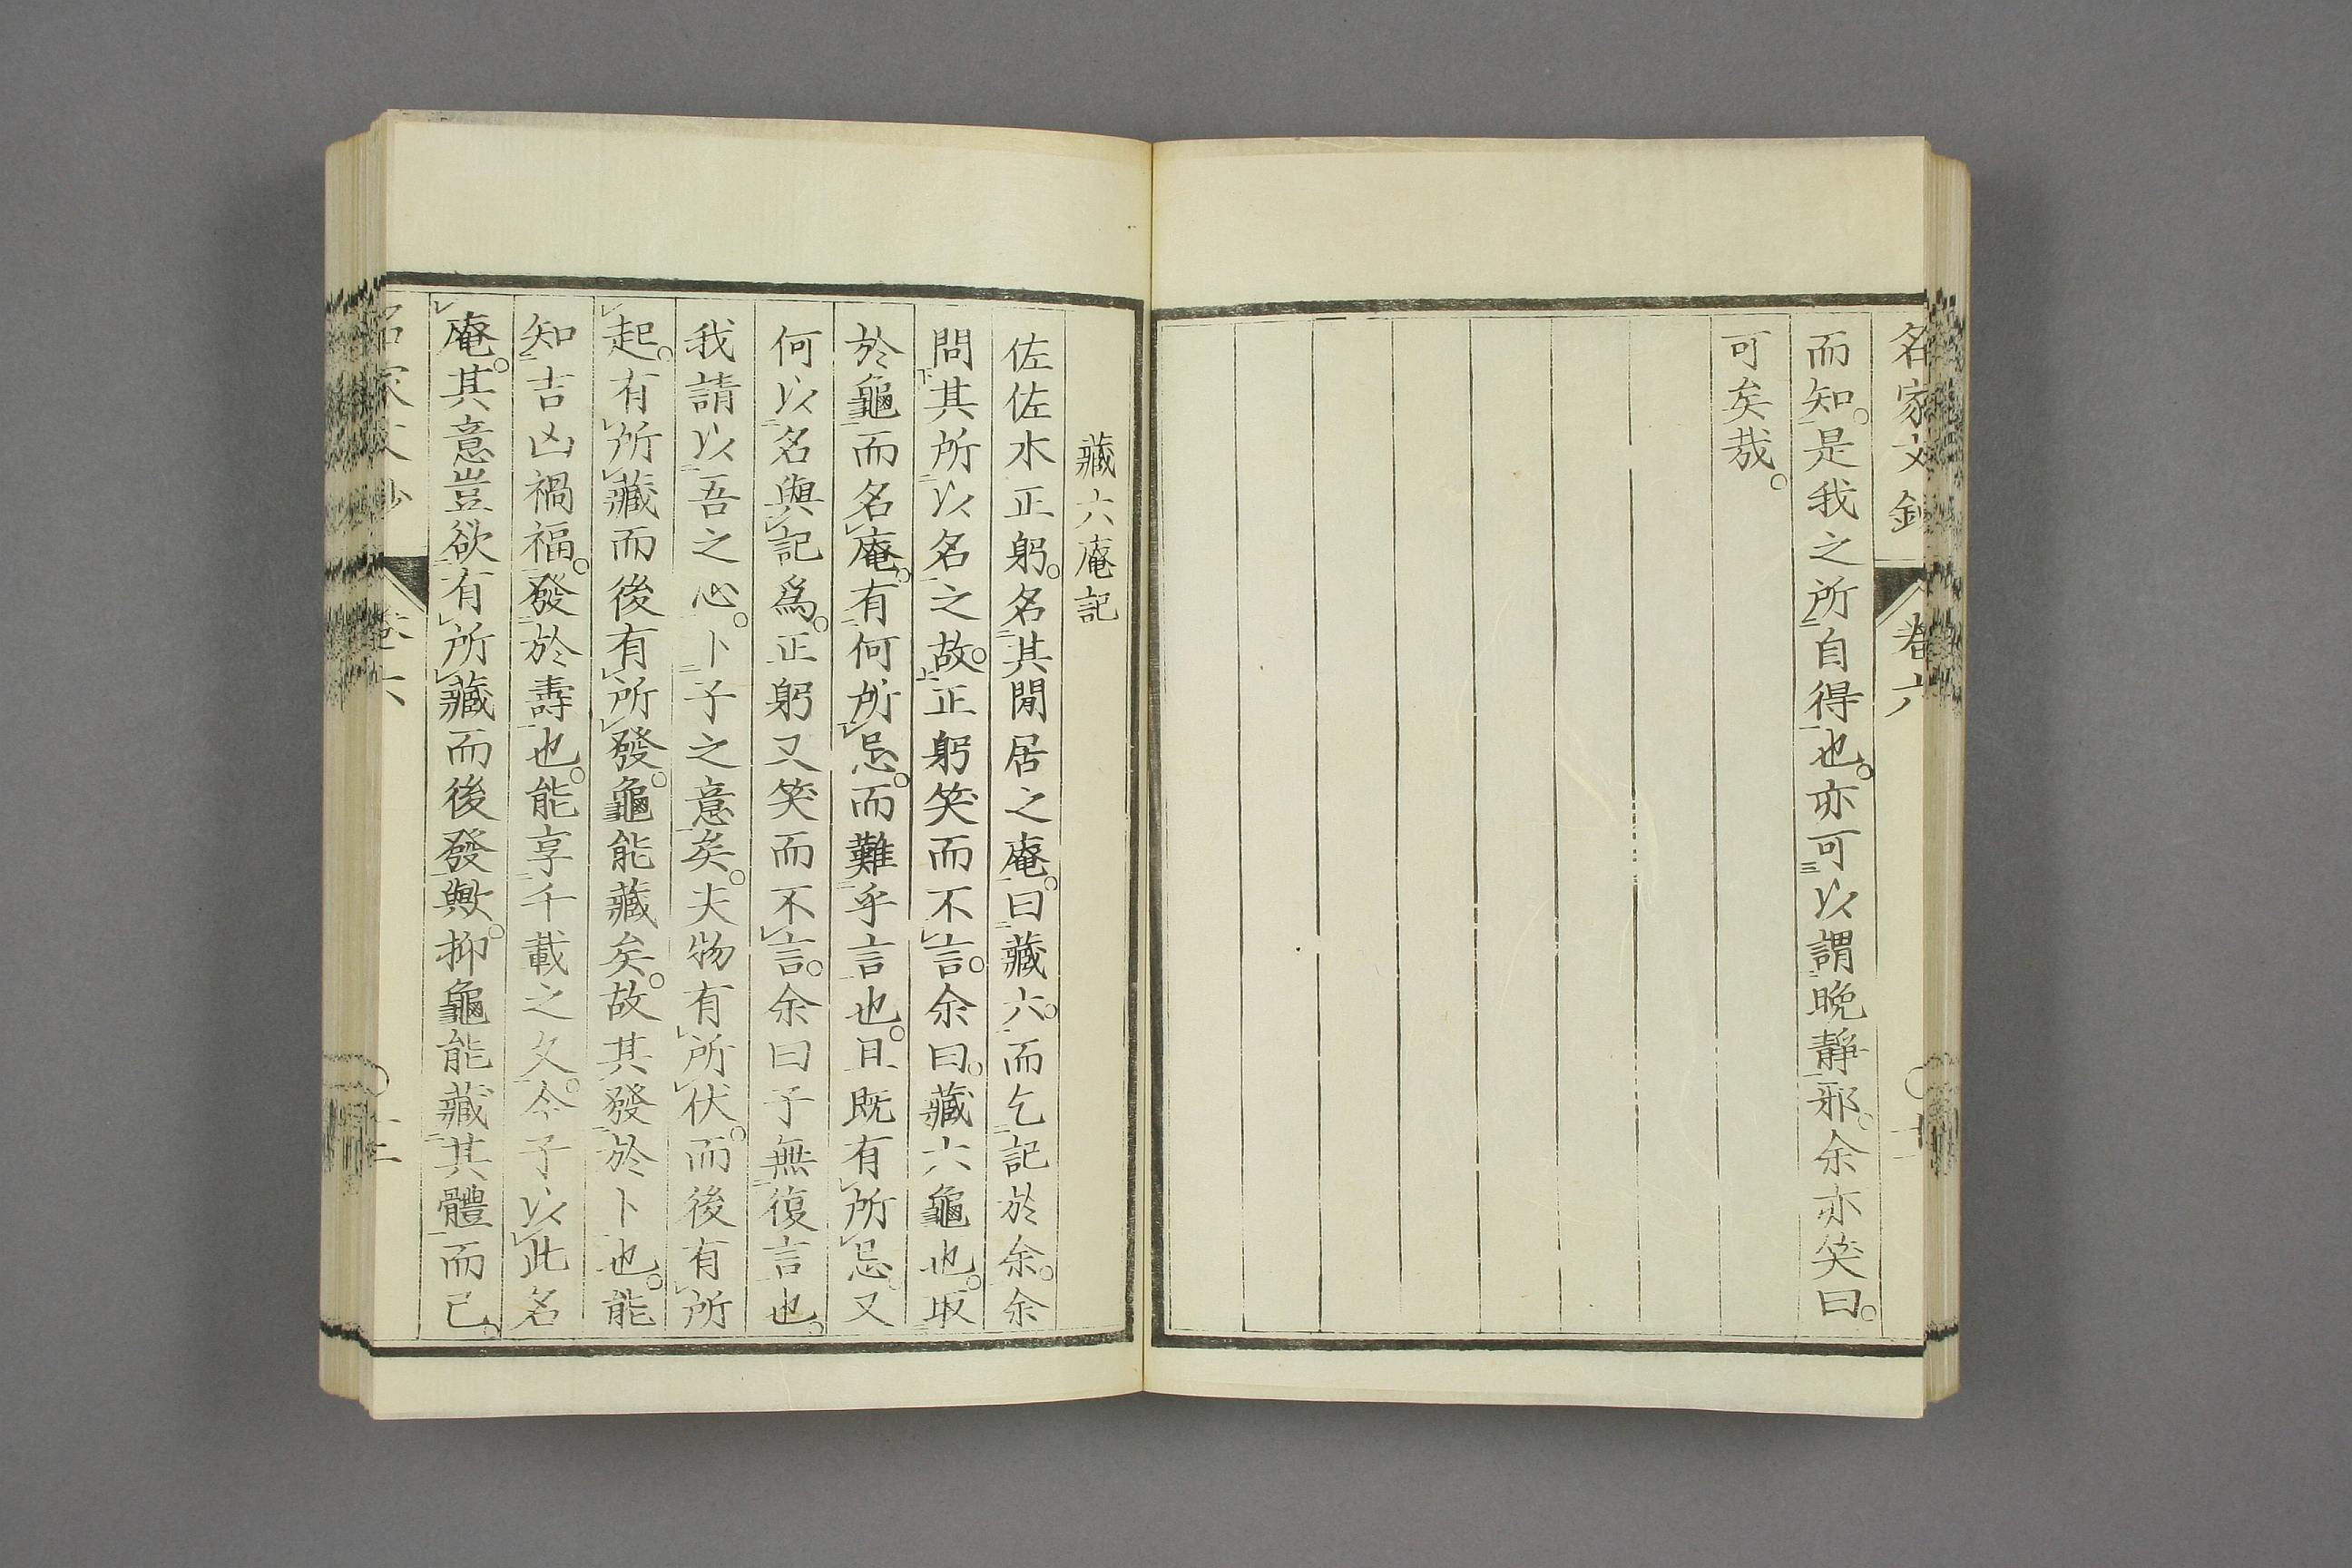 名家文鈔 卷六
而知。是我之所自得也。亦可以謂晩靜邪。余亦笑曰。
可矣哉。
藏六庵記
佐佐水正躬。名其閒居之庵。曰藏六。而乞記於余。余
問其所以名之故。正躬笑而不言。余曰。藏六龜也。取
於龜而名庵。有何所忌。而難乎言也。且既有所忌。又
何以名與記爲。正躬又笑而不言。余曰子無復言也。
我請以吾之心。卜子之意矣。夫物有所伏。而後有所
起。有所藏而後有所發。龜能藏矣。故其發於卜也。能
知吉凶禍福。發於壽也。能享千載之久。今子以此名
庵。其意豈欲有所藏而後發歟。抑龜能藏其體而已。